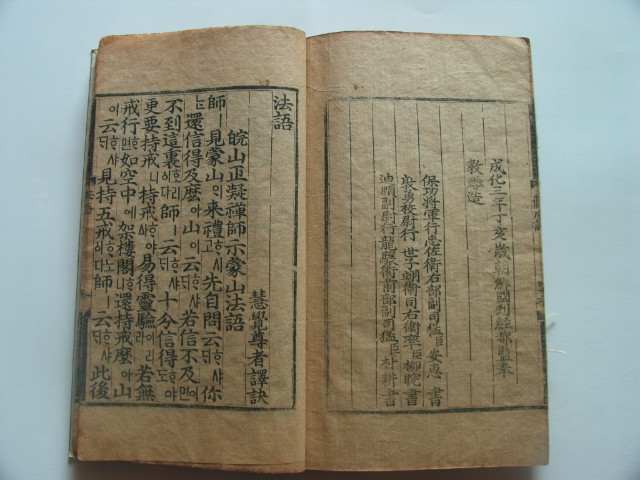 成化三年丁亥歲朝鮮國刊經都監奉
教雕造
保功將軍行忠佐衛右部副司猛臣安惠書
勇校尉行世子翊衛司右衛率臣柳睆書
迪順副尉行龍驤衛前部副司猛臣朴耕書
法語
慧覺尊者譯訣
皖山正凝禪師示蒙山法語
師ㅣ見蒙山의來禮ᄒᆞ시고先自問云ᄒᆞ샤ᄃᆡ你
ᄂᆞᆫ還信得及麼아山이云ᄒᆞ샤ᄃᆡ若信不及이면
不到這裏호리ᅌᅵ다師ㅣ云ᄒᆞ샤ᄃᆡ十分信得ᄒᆞ야도
更要持戒니持戒ᄒᆞ야ᅀᅡ易得靈驗이리라若無
戒行ᄒᆞ면如空中에架樓閣이니還持戒麼아山
이云ᄒᆞ샤ᄃᆡ見持五戒ᄒᆞ노ᅌᅵ다師ㅣ云ᄒᆞ샤ᄃᆡ此後